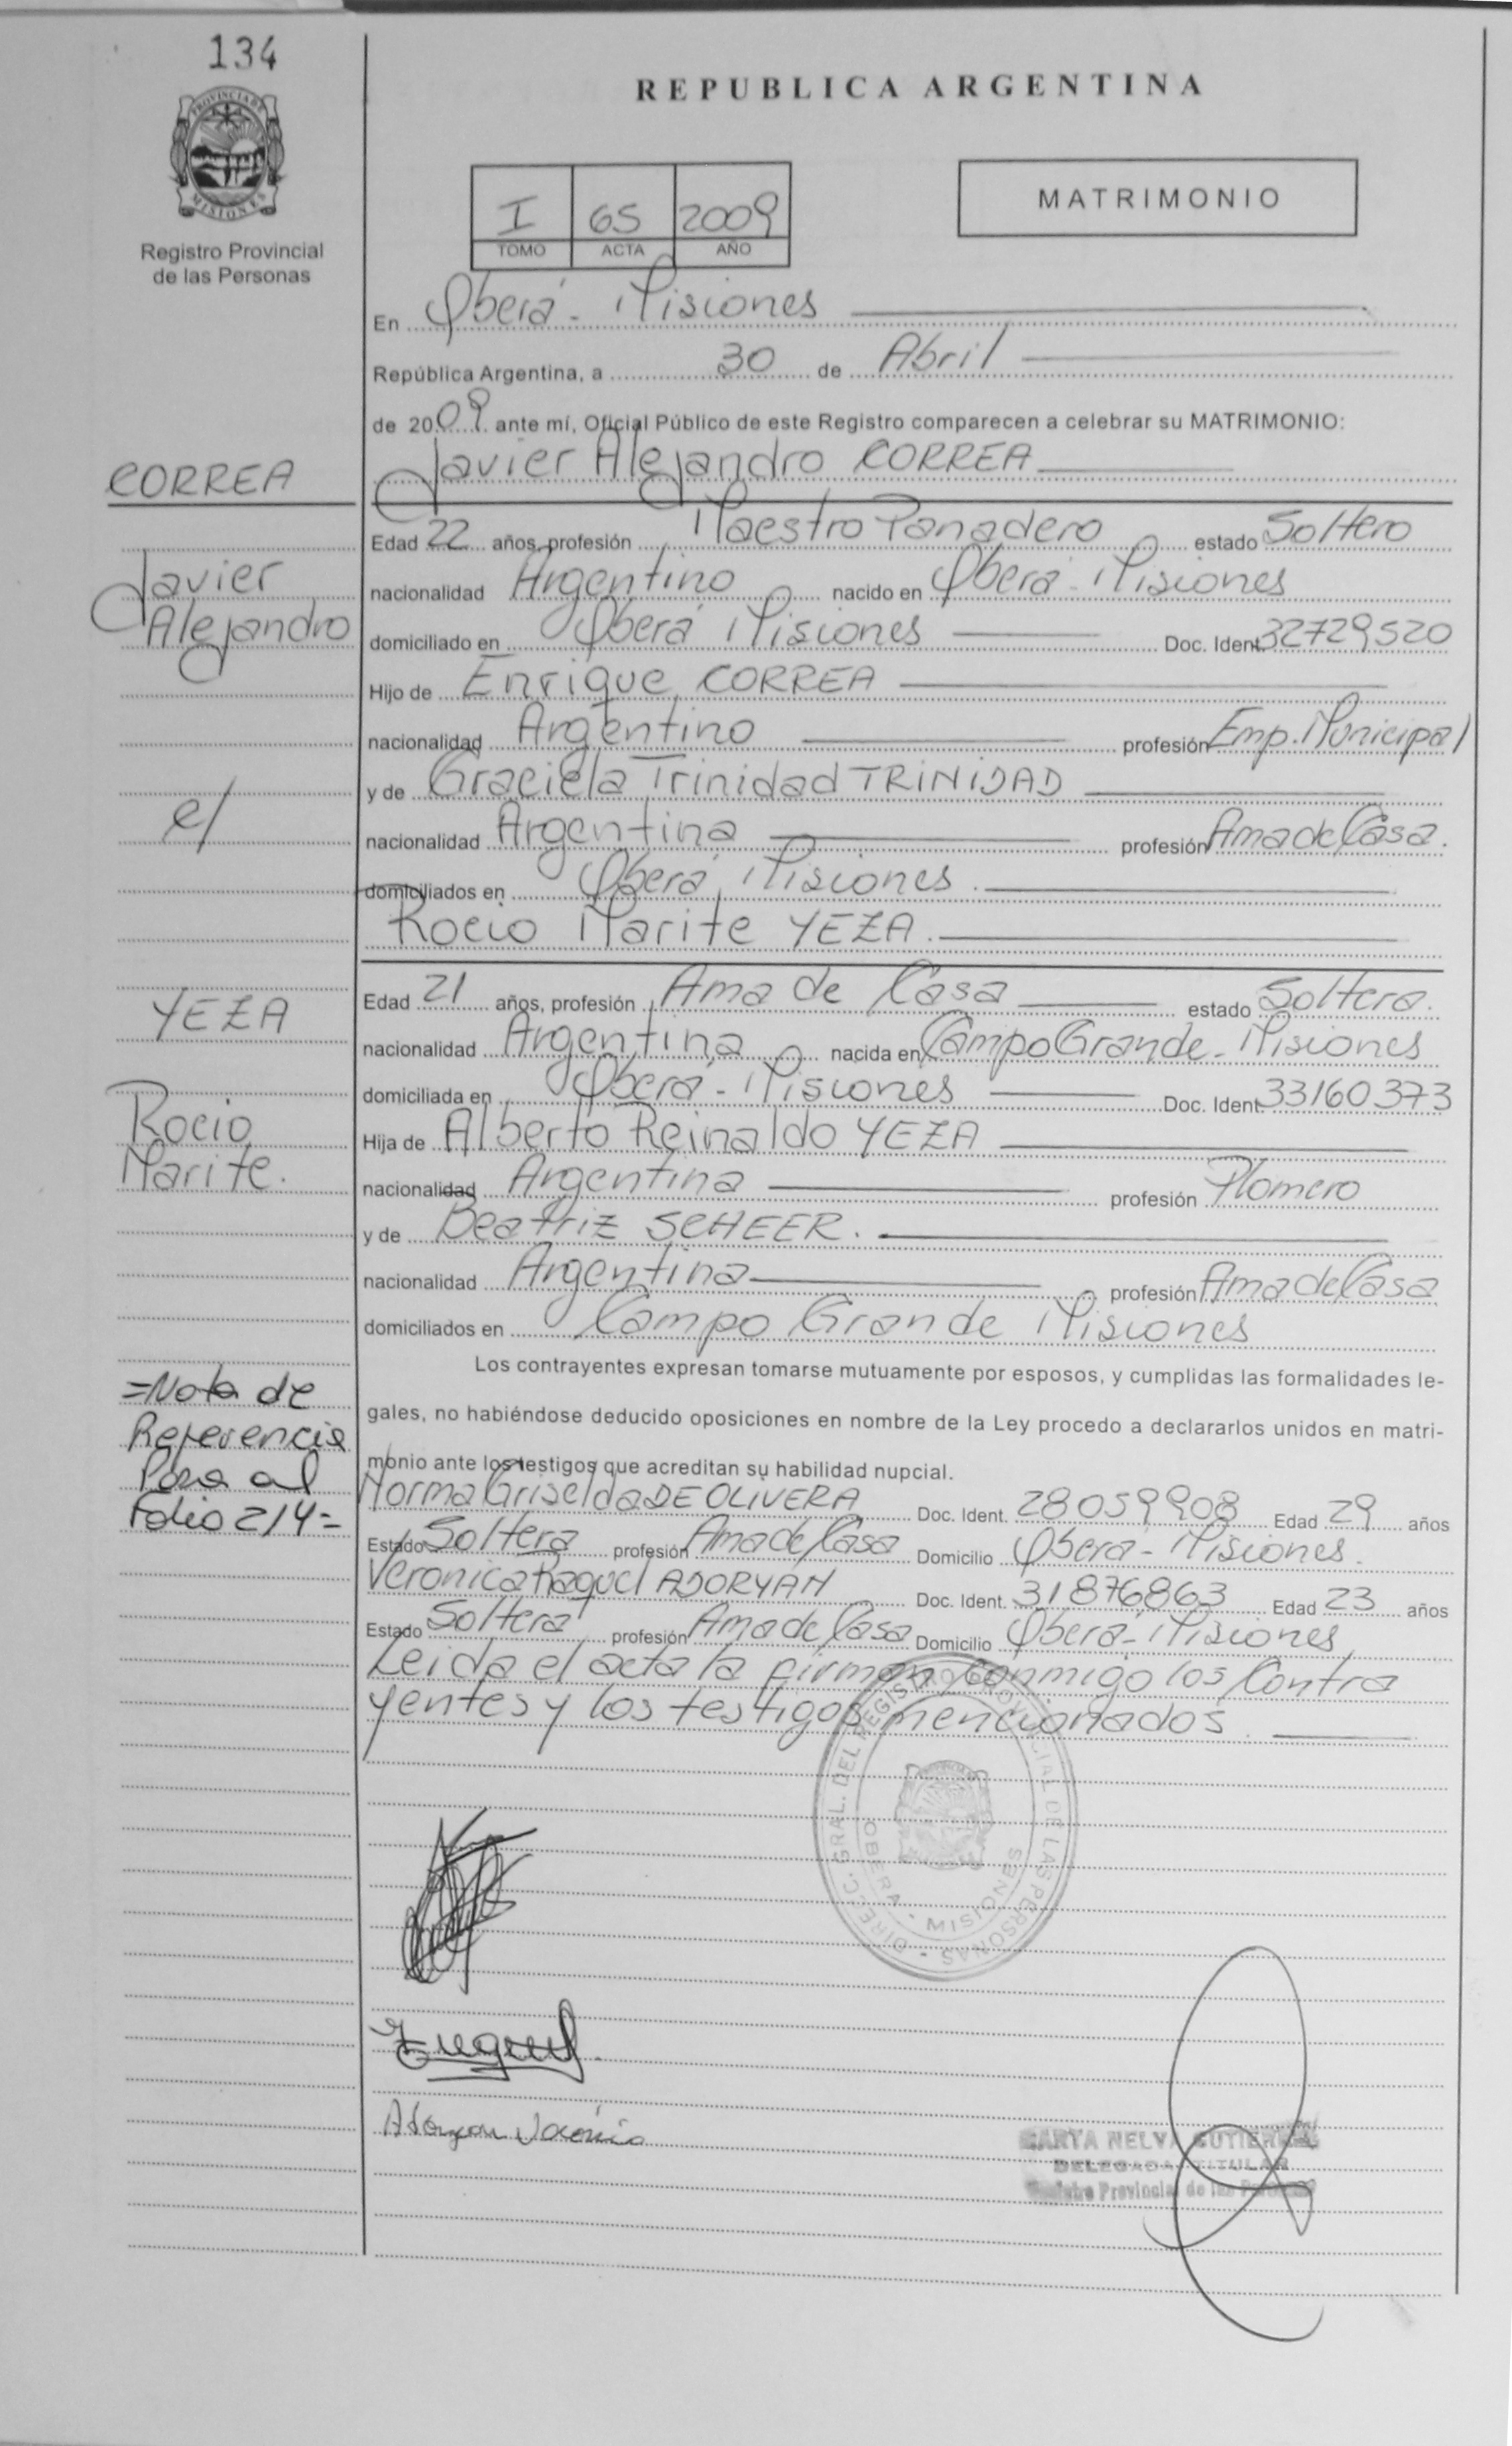 134
REPUBLICA ARGENTINA
PROVINCIA DE
MISIONES
Registro Provincial
de las Personas
I 65 2009
TOMO ACTA AÑO
MATRIMONIO
En Oberá - Misiones
República Argentina, a 30 de Abril
de 2009 ante mí, Oficial Público de este Registro comparecen a celebrar su MATRIMONIO:
CORREA
Javier Alejandro CORREA
Edad 22 años, profesión Maestro Panadero estado Soltero
Javier
nacionalidad Argentino nacido en Oberá - Misiones
Alejandro
domiciliado en Oberá Misiones Doc. Ident. 32729520
Hijo de Enrique CORREA
nacionalidad Argentino profesión Emp. Municipal
y de Graciela Trinidad TRINIDAD
c/
nacionalidad Argentina profesión Ama de Casa.
domiciliados en Oberá, Misiones.
Rocio Marite YEZA.
Edad 21 años, profesión Ama de Casa estado Soltera.
YEZA
nacionalidad Argentina nacida en Campo Grande - Misiones
domiciliada en Oberá - Misiones Doc. Ident. 33160373
Rocio
Hija de Alberto Reinaldo YEZA
Marite.
nacionalidad Argentina profesión Plomero
y de Beatriz SCHEER.
nacionalidad Argentina profesión Ama de Casa
domiciliados en Campo Grande Misiones
Los contrayentes expresan tomarse mutuamente por esposos, y cumplidas las formalidades le-
gales, no habiéndose deducido oposiciones en nombre de la Ley procedo a declararlos unidos en matri-
monio ante los testigos que acreditan su habilidad nupcial.
=Nota de
Referencia
Pasa al
Folio 214=
Norma Griselda DE OLIVERA Doc. Ident. 28059908 Edad 29 años
Estado Soltera profesión Ama de Casa Domicilio Oberá - Misiones.
Veronica Raquel ADORYAN Doc. Ident. 31876863 Edad 23 años
Estado Soltera profesión Ama de Casa Domicilio Oberá - Misiones
Leida el acta la firman conmigo los Contra
yentes y los testigos mencionados.
DIREC. GRAL. DEL REGISTRO PROVINCIAL DE LAS PERSONAS
OBERA - MISIONES
Adoryan Veronica
NELVA GUTIERREZ
DELEGADA TITULAR
Registro Provincial de las Personas